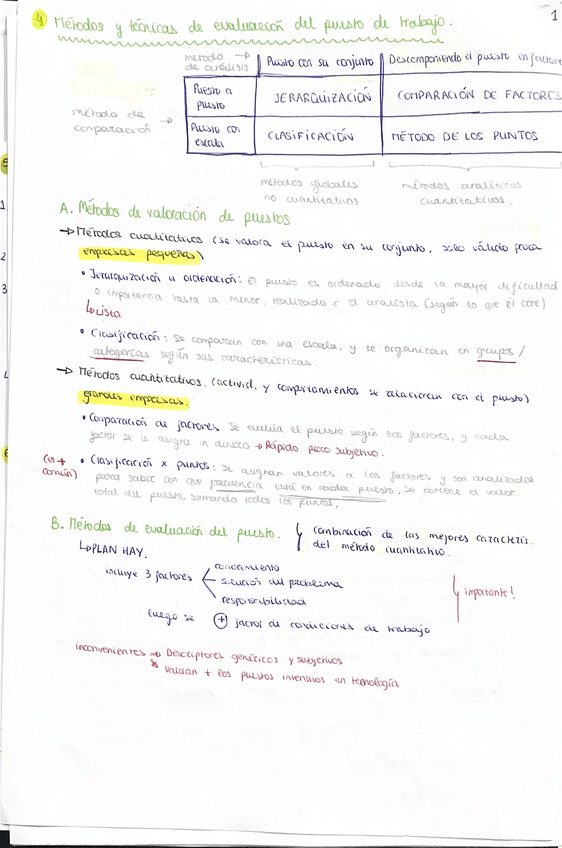 4 Métodos y técnicas de evaluación del puesto de trabajo. 1
método → de análisis | Puesto con su conjunto | Descomponiendo el puesto en factore
método de comparación →
Puesto a puesto | JERARQUIZACIÓN | COMPARACIÓN DE FACTORES
Puesto con escala | CLASIFICACIÓN | MÉTODO DE LOS PUNTOS
métodos globales no cuantitativos
métodos analíticos cuantitativos.
A. Métodos de valoración de puestos
→ Métodos cualitativos (se valora el puesto en su conjunto, solo válido para
empresas pequeñas)
• Jerarquización u ordenación: El puesto es ordenado desde la mayor dificultad
o importancia hasta la menor, realizado x el analista (según lo que él cree)
↳ Lista
• Clasificación: Se comparan con una escala, y se organizan en grupos /
categorías según sus características.
→ Métodos cuantitativos. (activid. y comportamientos se relacionan con el puesto)
grandes empresas.
• Comparación de factores Se evalúa el puesto según los factores, y cada
factor se le asigna un dinero → Rápido pero subjetivo.
(el + común) • Clasificación x puntos: Se asignan valores a los factores y son analizados
para saber con que frecuencia está en cada puesto. Se obtiene el valor
total del puesto, sumando todos los puntos.
B. Métodos de evaluación del puesto.
combinación de las mejores caracterís.
del método cuantitativo.
↳ PLAN HAY.
incluye 3 factores
conocimiento
solución del problema
responsabilidad
importante!
luego se + factor de condiciones de trabajo
inconvenientes → Descriptores genéricos y subjetivos
↘ Valoran + los puestos intensivos en tecnología